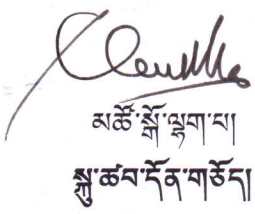 མཚོ་སྒོ་ལྷག་པ།
སྐུ་ཚབ་དོན་གཅོད།